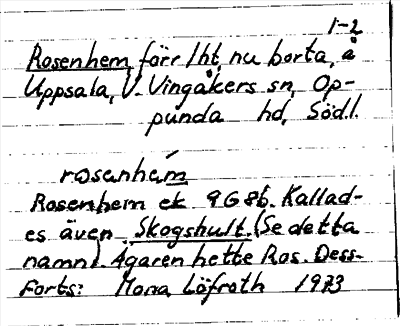 1-2
Rosenhem, förr lht, nu borta, å
Uppsala, V. Vingåkers sn, Op-
punda hd, Södl.
rosanhem
Rosenhem ek 9G8b. Kallad-
es även Skogshult. (Se detta
namn). Ägaren hette Ros. Dess-
Forts: Mona Löfroth 1973